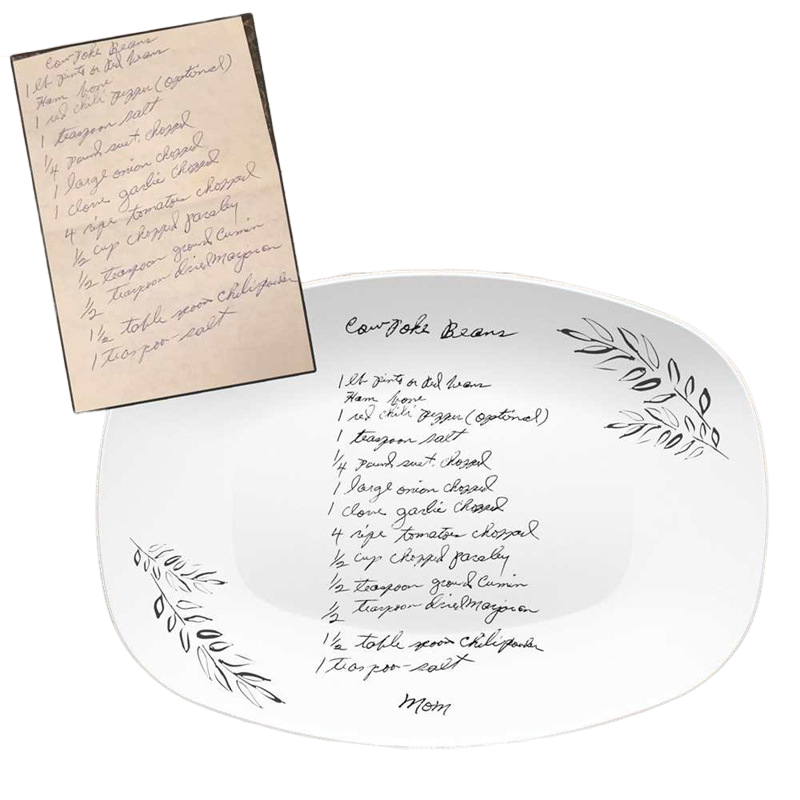 CowPoke Beans
1 lb pinto or red beans
Ham bone
1 red chili pepper (optional)
1 teaspoon salt
1/4 pound suet. chopped
1 large onion chopped
1 clove garlic chopped
4 ripe tomatoes chopped
1/2 cup chopped parsley
1/2 teaspoon ground Cumin
1/2 teaspoon dried Marjoram
1 1/2 table spoon Chili powder
1 teaspoo-salt
CowPoke Beans
1 lb pinto or red beans
Ham bone
1 red chili pepper (optional)
1 teaspoon salt
1/4 pound suet. chopped
1 large onion chopped
1 clove garlic chopped
4 ripe tomatoes chopped
1/2 cup chopped parsley
1/2 teaspoon ground Cumin
1/2 teaspoon dried Marjoram
1 1/2 table spoon Chili powder
1 teaspoo-salt
Mom